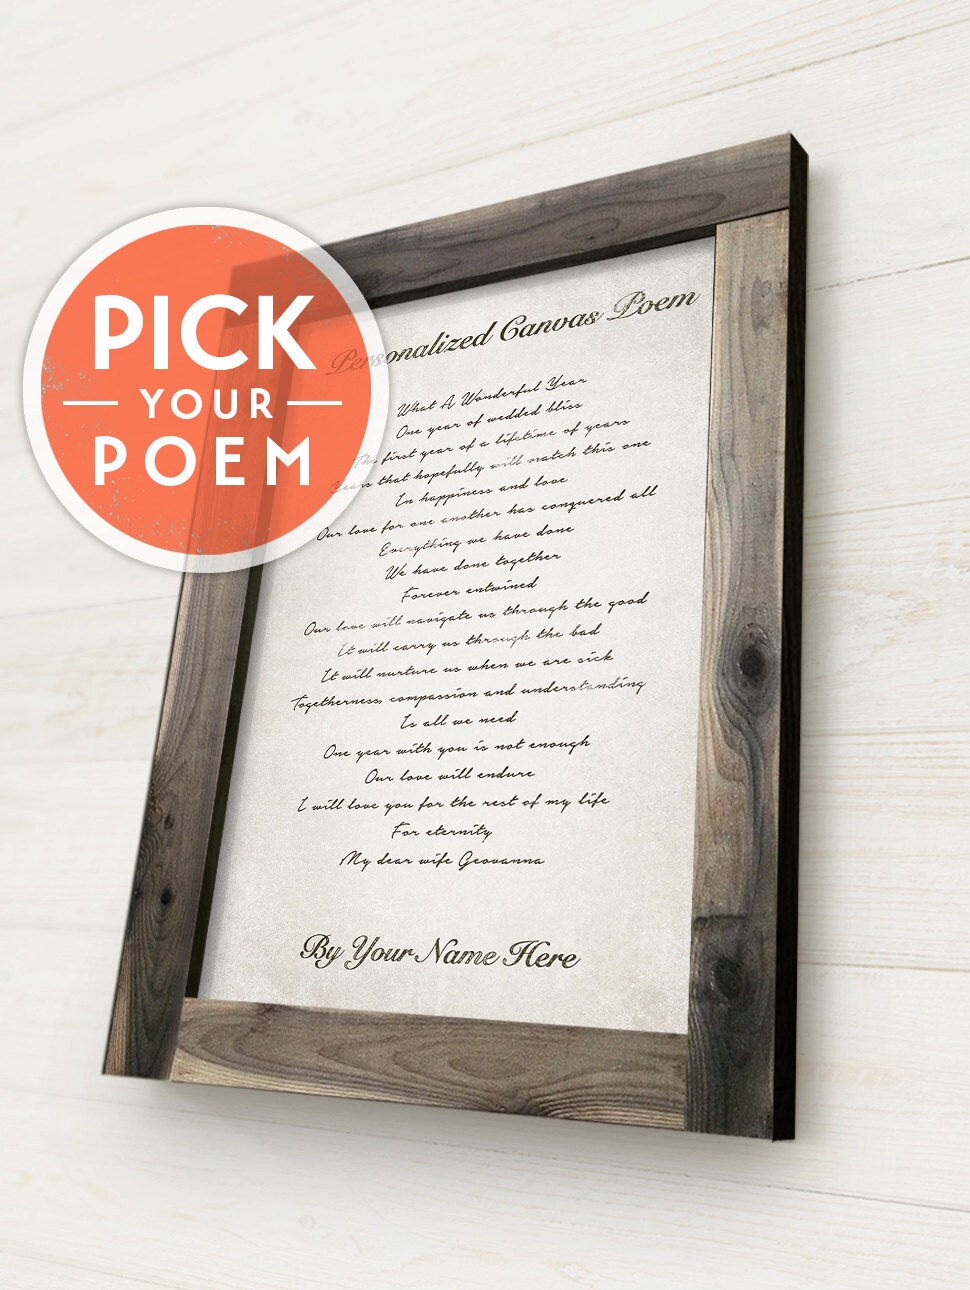 PICK
YOUR
POEM
Personalized Canvas Poem
What A Wonderful Year
One year of wedded bliss
The first year of a lifetime of years
Years that hopefully will match this one
In happiness and love
Our love for one another has conquered all
Everything we have done
We have done together
Forever entwined
Our love will navigate us through the good
It will carry us through the bad
It will nurture us when we are sick
Togetherness, compassion and understanding
Is all we need
One year with you is not enough
Our love will endure
I will love you for the rest of my life
For eternity
My dear wife Geovanna
By Your Name Here